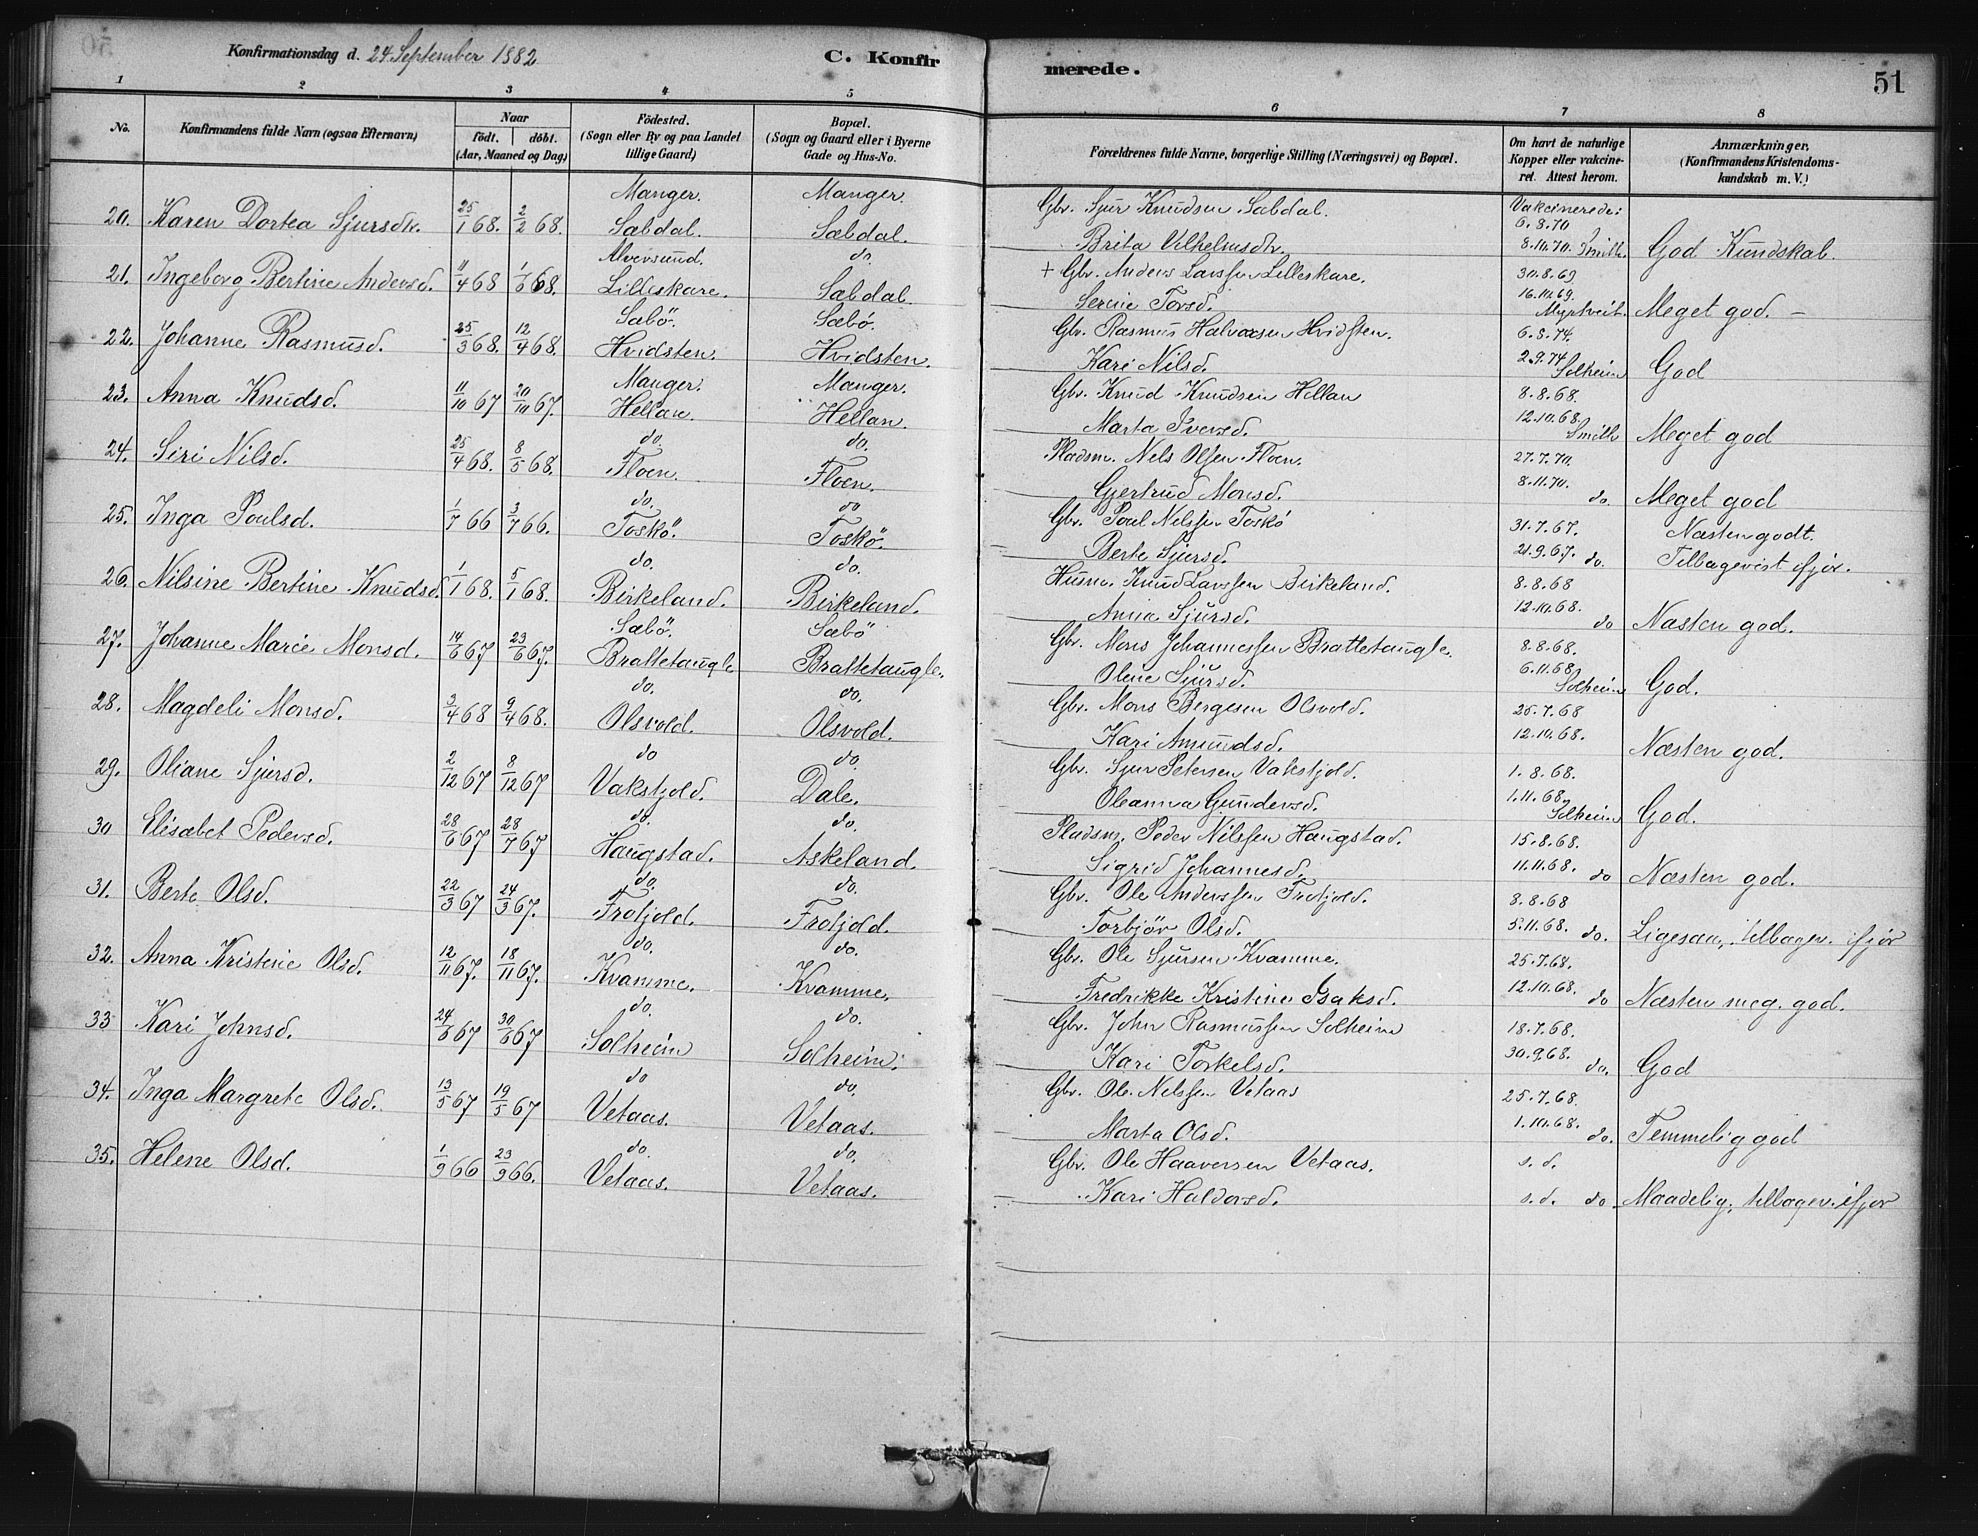 Konfirmationsdag d. 24. September 1882
C. Konfirmerede.
51
1 2 3 4 5 6 7 8
No.
Konfirmandens fulde Navn (ogsaa Efternavn)
Naar
födt. döbt.
(Aar, Maaned og Dag)
Födested.
(Sogn eller By og paa Landet
tillige Gaard)
Bopæl.
(Sogn og Gaard eller i Byerne
Gade og Hus-No.
Forældrenes fulde Navne, borgerlige Stilling (Næringsvei) og Bopæl.
Om havt de naturlige
Kopper eller vakcine-
ret. Attest herom.
Anmærkninger.
(Konfirmandens Kristendoms-
kundskab m. V.)
Manger. Manger. Gbr. Sjur Knudsen Sæbdal. Vakcinerede:
6.8.70
20. Karen Dortea Sjursdtr. 25/1 68. 2/2 68. Sæbdal. Sæbdal.
Brita Vilhelmsdtr. 8.10.70. Smith. God Kundskab.
Alversund. do. + Gbr. Anders Larssen Lilleskare. 30.8.69
21. Ingeborg Bertine Andersd. 11/4 68 1/6 68. Lilleskare. Sæbdal.
Serine Torsd. 16.10.69. Myrtveit. Meget god. –
Sæbö. Sæbö. Gbr. Rasmus Halvorsen Hvidsten. 6.8.74.
22. Johanne Rasmusd. 25/3 68. 12/4 68. Hvidsten. Hvidsten.
Kari Nilsd. 2.9.74 Solheim God
Manger. Manger. Gbr. Knud Knudsen Hellan 8.8.68.
23. Anna Knudsd. 11/10 67 20/10 67. Hellan. Hellan.
Marta Iversd. 12.10.68. Smith Meget god
do. do. Pladsm. Nels Olsen Floen. 27.7.70.
24. Siri Nilsd. 25/4 68. 8/5 68. Floen. Floen.
Gjertrud Monsd. 8.11.70. do. Meget god
do. do Gbr. Poul Nelssen Toskö 31.7.67. Næsten godt.
25. Inga Poulsd. 1/7 66 3/7 66. Toskö. Toskö.
Berte Sjursd. 21.9.67. do. Tilbagevist ifjor.
do. do. Husm. Knud Larssen Birkeland. 8.8.68
26. Nilsine Bertine Knudsd. 1/1 68. 5/1 68. Birkeland. Birkeland.
Anna Sjursd. 12.10.68. do Næsten god.
Sæbö. Sæbö Gbr. Mons Johannessen Brattetaugle. 8.8.68.
27. Johanne Marie Monsd. 14/6 67 23/6 67. Brattetaugle Brattetaugle.
Olene Sjursd. 6.11.68 Solheim God.
do. do. Gbr. Mons Bergesen Olsvold. 25.7.68
28. Magdeli Monsd. 3/4 68 9/4 68. Olsvold. Olsvold.
Kari Amundsd. 12.10.68. Næsten god.
do do. Gbr. Sjur Petersen Vaksfjold. 1.8.68.
29. Oliane Sjursd. 2/12 67 8/12 67 Vaksfjold. Dale.
Oleanna Gundersd. 1.11.68. Solheim God.
do. do. Pladsm. Peder Nilssen Haugstad. 15.8.68.
30 Elisabet Pedersd. 28/6 67 28/7 67 Haugstad. Askeland.
Sigrid Johannesd. 11.11.68. do Næsten god.
do. do. Gbr. Ole Anderssen Frofjold. 8.8.68
31. Berte Olsd. 22/3 67 24/3 67. Frofjold. Frofjold.
Torbjör Olsd. 5.11.68. do. Ligesaa, tilbagev. ifjor
do. do. Gbr. Ole Sjursen Kvamme. 25.7.68.
32. Anna Kristine Olsd. 12/11 67. 18/11 67. Kvamme. Kvamme.
Fredrikke Kristine Isaksd. 12.10.68. do Næsten meg. god.
do. do. Gbr. John Rasmussen Solheim 18.7.68.
33 Kari Johnsd. 24/6 67 30/6 67 Solheim Solheim.
Kari Torkelsd. 30.9.68. do. God
do do. Gbr. Ole Nelssen Vetaas 25.7.68.
34. Inga Margrete Olsd. 13/5 67 19/5 67 Vetaas. Vetaas.
Marta Olsd. 1.10.68. do. Temmelig god
do. do. Gbr. Ole Haaversen Vetaas. s.d.
35. Helene Olsd. 1/9 66 23/9 66. Vetaas. Vetaas.
Kari Haldorsd. s.d. do. Maadelig, tilbagev. ifjor